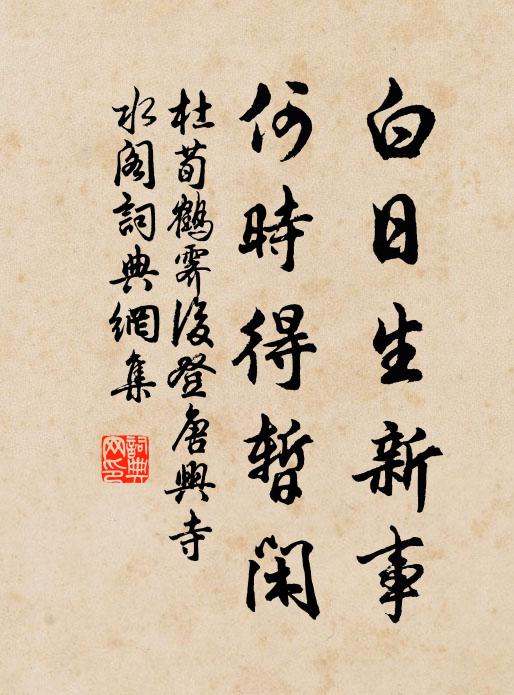 白日生新事
何時得暫閑
杜荀鶴霽後登唐興寺
水阁詞典網集
詞典网印